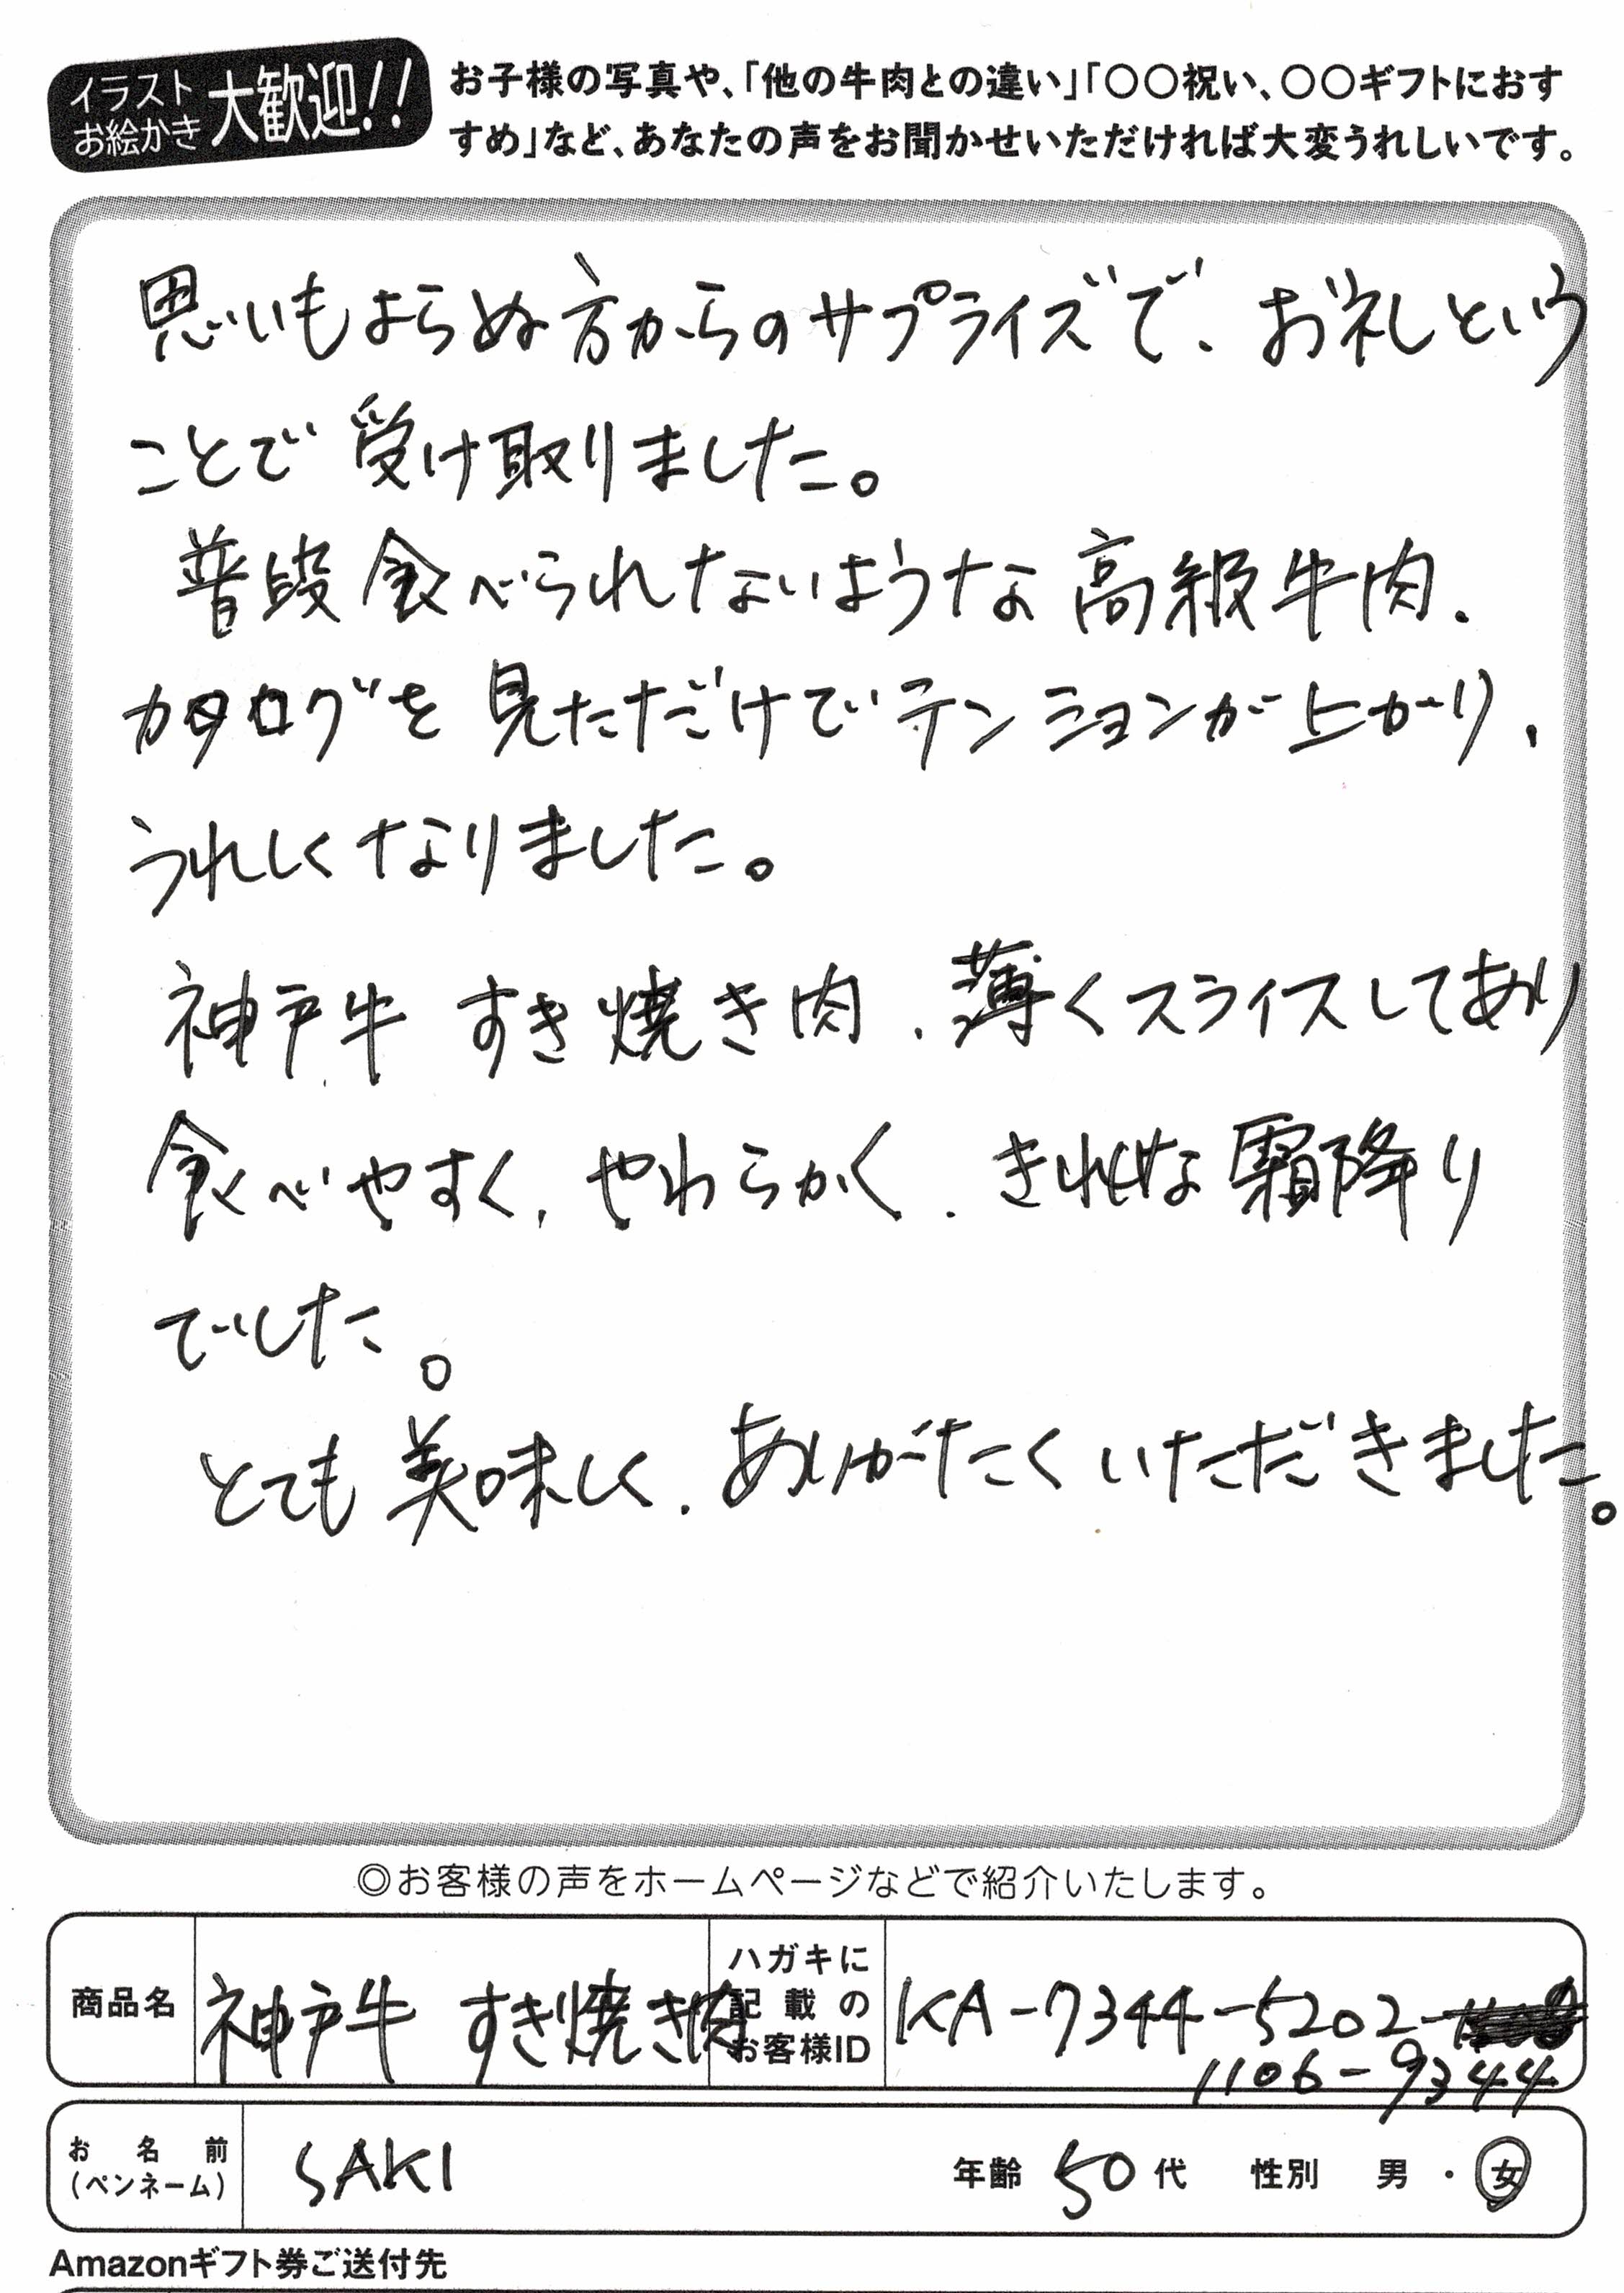 イラスト
お絵かき
大歓迎!!
お子様の写真や、「他の牛肉との違い」「〇〇祝い、〇〇ギフトにおす
すめ」など、あなたの声をお聞かせいただければ大変うれしいです。
思いもよらぬ方からのサプライズで、お礼という
ことで受け取りました。
普段食べられないような高級牛肉、
カタログを見ただけでテンションが上がり、
うれしくなりました。
神戸牛 すき焼き肉、薄くスライスしてあり
食べやすく、やわらかく、きれいな霜降り
でした。
とても美味しく、ありがたくいただきました。
◎お客様の声をホームページなどで紹介いたします。
商品名 神戸牛 すき焼き肉
ハガキに
記載の
お客様ID
KA-7344-5202-
1106-9344
お名前
(ペンネーム)
SAKI
年齢 50代 性別 男・女
Amazonギフト券ご送付先